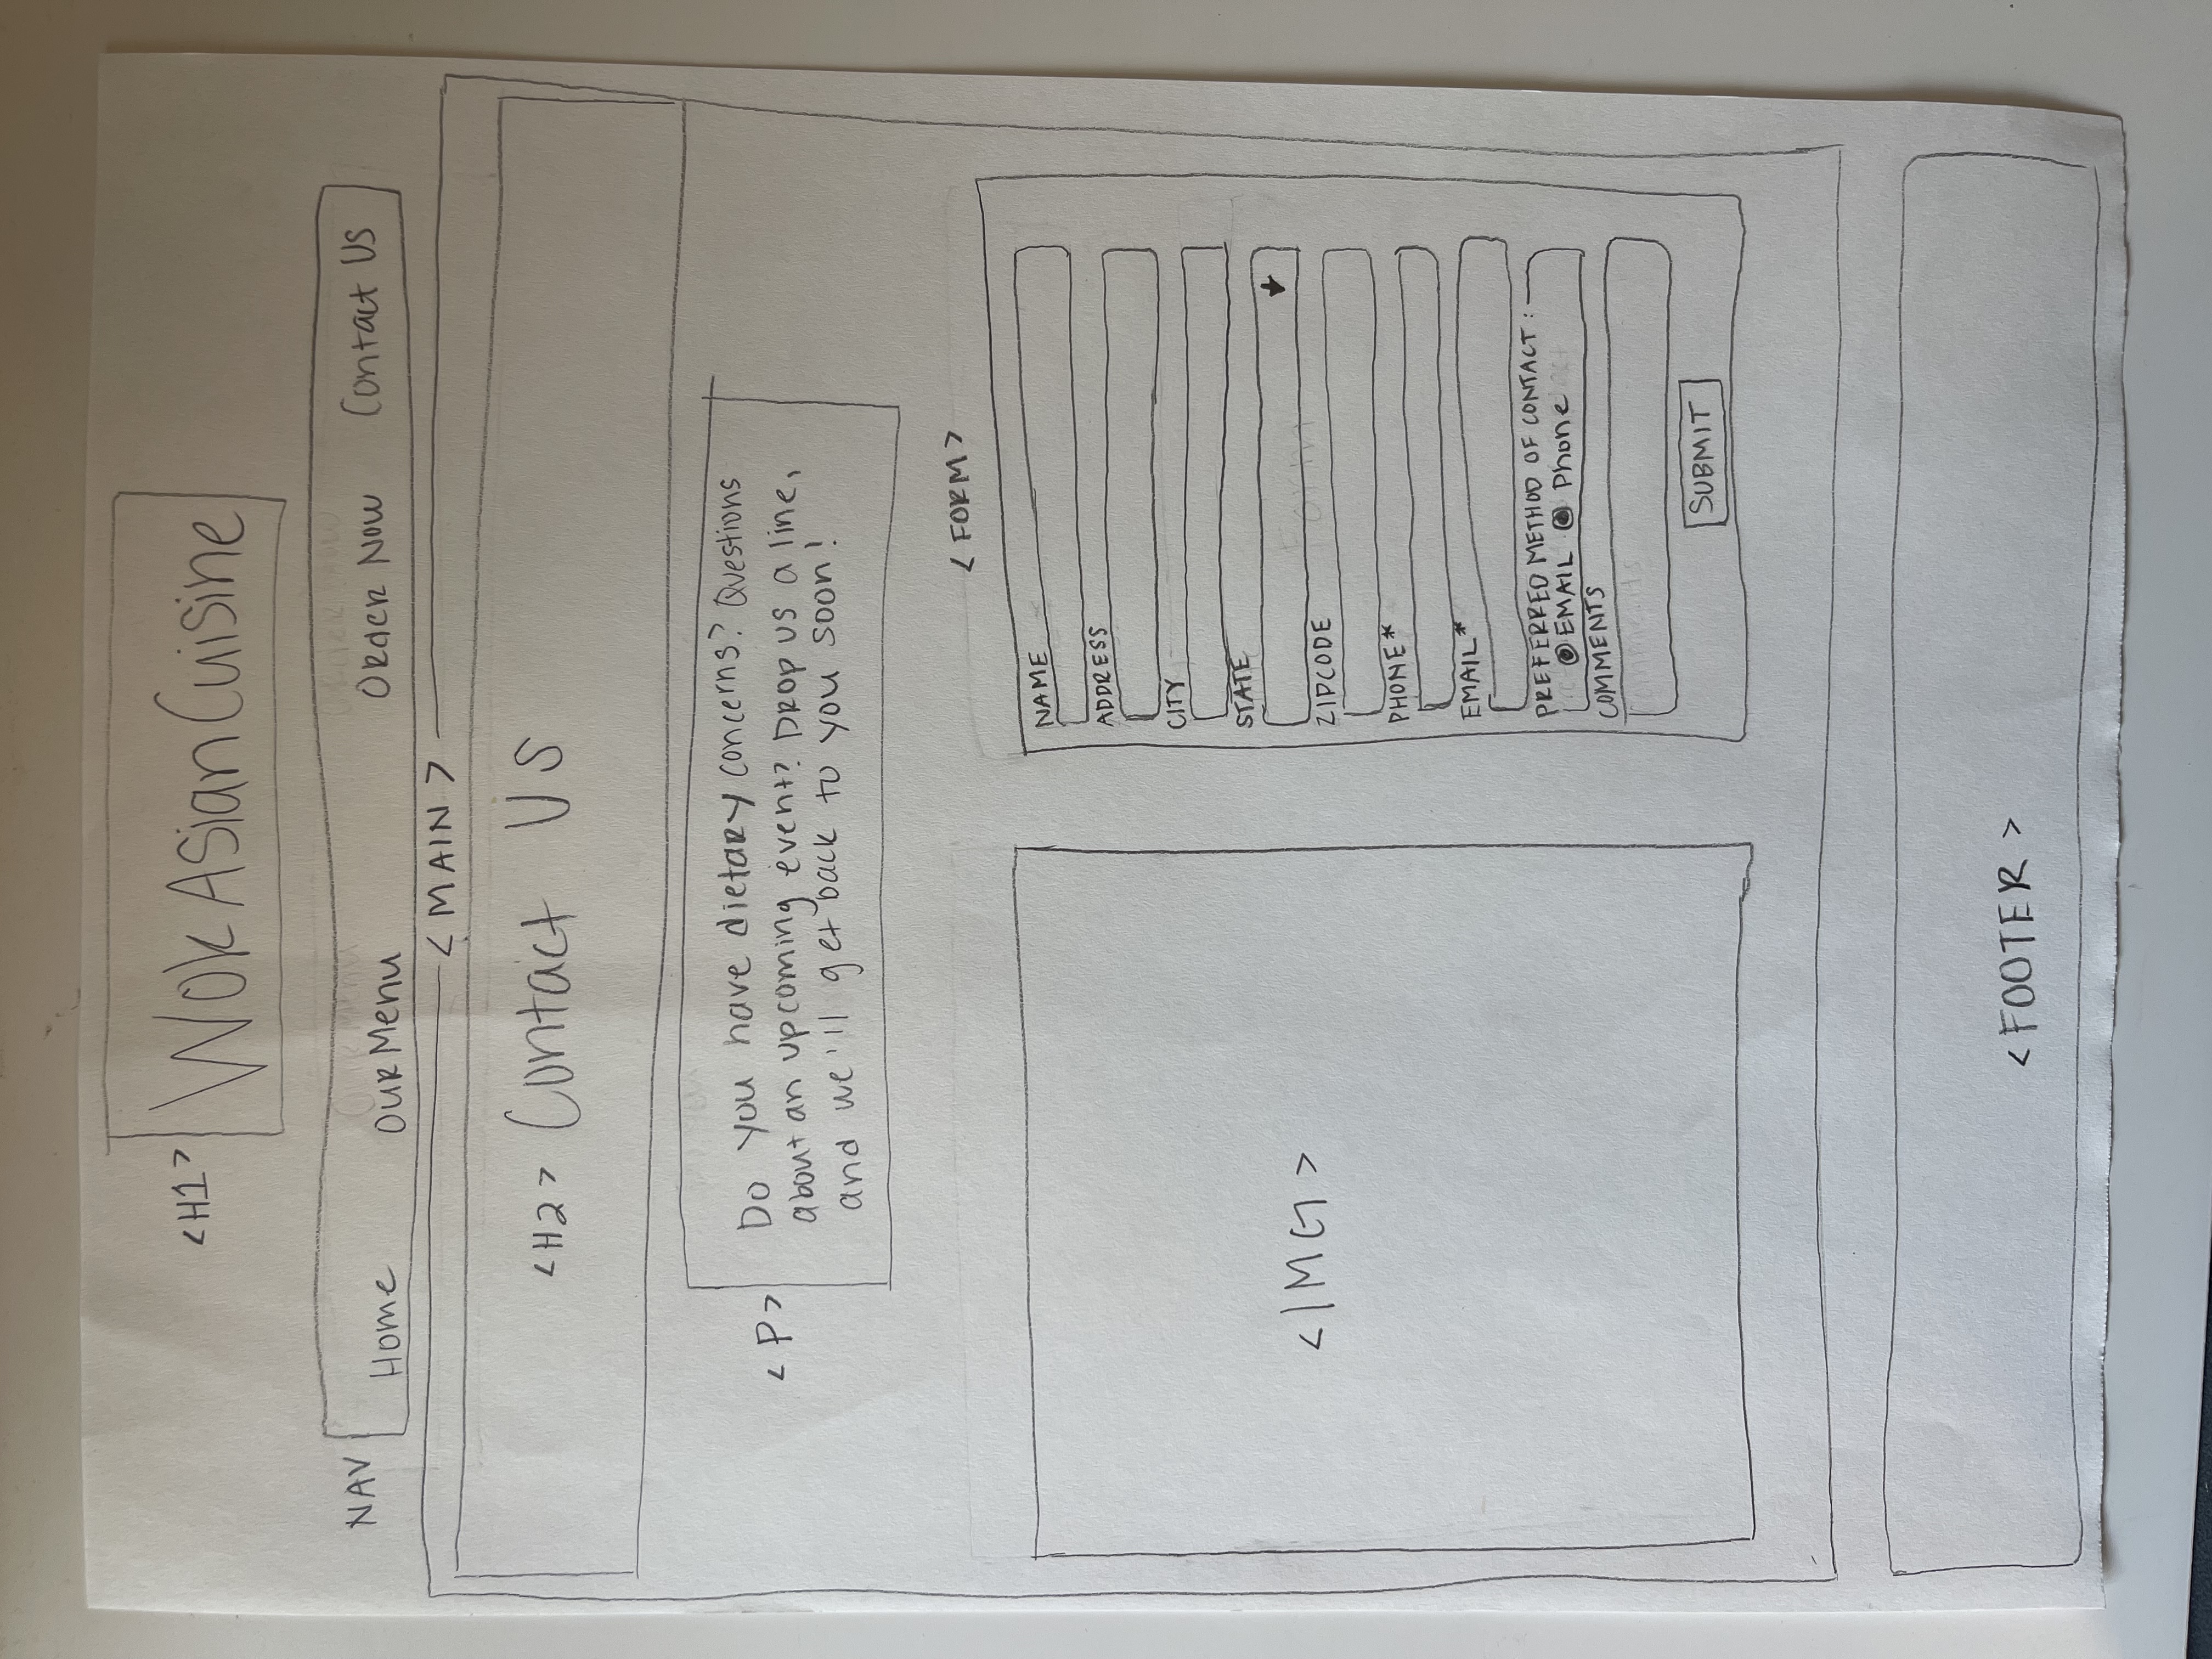 <H1> Wok Asian Cuisine
NAV Home Our Menu Order Now Contact Us
<MAIN>
<H2> Contact Us
Do you have dietary concerns? Questions
<P> about an upcoming event? Drop us a line,
and we'll get back to you soon!
<FORM>
NAME
ADDRESS
CITY
STATE
<IMG>
ZIPCODE
PHONE*
EMAIL*
PREFERRED METHOD OF CONTACT:
EMAIL Phone
COMMENTS
SUBMIT
<FOOTER>